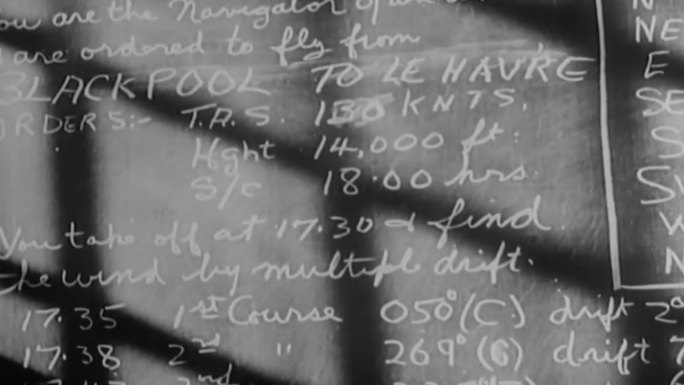 you are the Navigator of an
are ordered to fly from
BLACKPOOL TO LE HAVRE
ORDERS:- T.A.S. 130 KNTS.
Hght 14,000 ft.
S/c 18.00 hrs.
You take off at 17.30 & find
the wind by multiple drift.
17.35 1st Course 050°(C) drift 2°
17.38 2nd " 269°(C) drift 7
N
NE
E
SE
S
SW
W
N